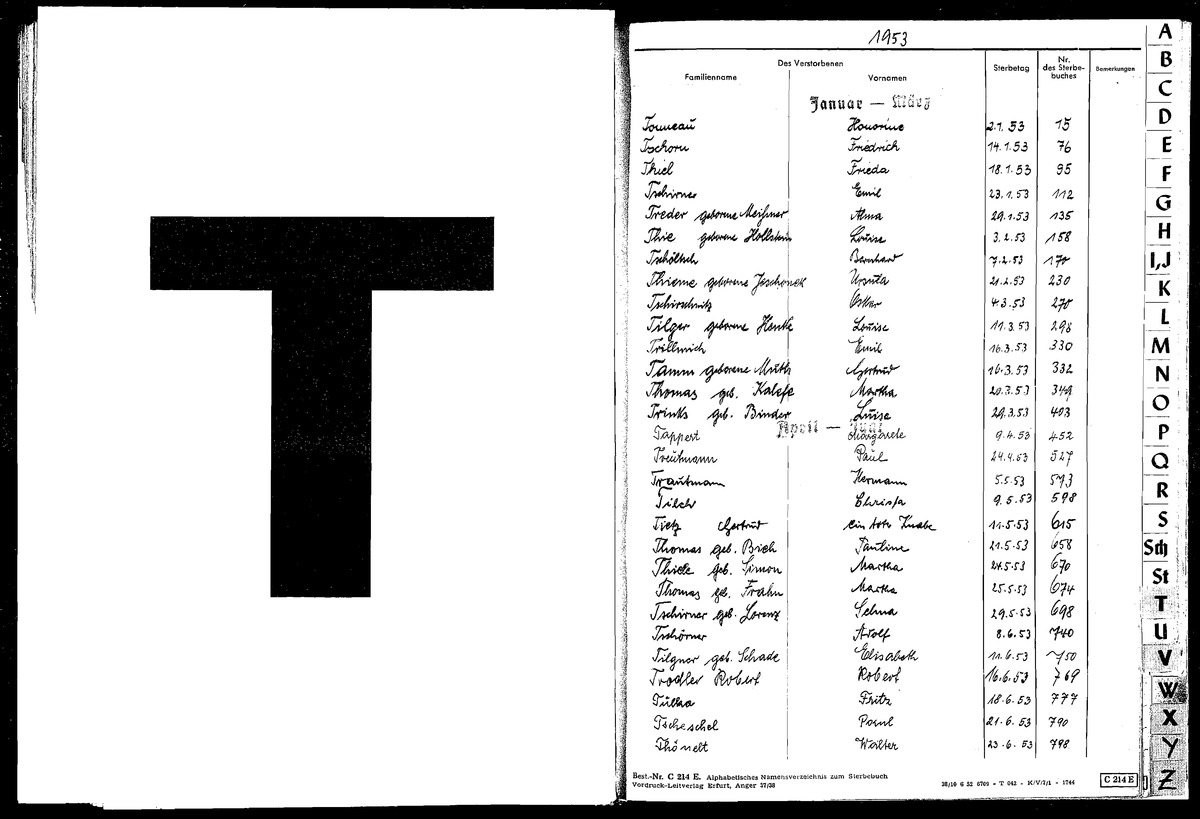 T
1953
Des Verstorbenen
Familienname Vornamen Sterbetag Nr. des Sterbebuches Bemerkungen
Januar — März
Tonneau Honorine 2.1.53 15
Tschorn Friedrich 14.1.53 76
Thiel Frieda 18.1.53 95
Tschirner Emil 23.1.53 112
Treder geborene Meißner Alma 29.1.53 135
Thie geborene Hollstein Louise 3.2.53 158
Tschöltsch Bernhard 7.2.53 170
Thieme geborene Jeschonek Ursula 21.2.53 230
Tschirschnitz Oskar 4.3.53 270
Tilger geborene Henke Louise 11.3.53 298
Trillmich Emil 16.3.53 330
Tamm geborene Muth Gertrud 16.3.53 332
Thomas geb. Martha 20.3.53 349
Trinks geb. Binder Luise 29.3.53 403
April — Juni
Tappert Margarete 9.4.53 452
Treutmann Paul 24.4.53 527
Trautmann Hermann 5.5.53 593
Tilch Christa 9.5.53 598
Tietz Gertrud ein toter Knabe 11.5.53 615
Thomas geb. Bich Pauline 21.5.53 658
Thiele geb. Simon Martha 24.5.53 670
Thomas geb. Frahn Martha 25.5.53 674
Tschirner geb. Lorenz Selma 29.5.53 698
Tschörner Adolf 8.6.53 740
Tilgner geb. Schade Elisabeth 11.6.53 750
Trodler Robert Robert 16.6.53 769
Tulka Fritz 18.6.53 777
Tscheschel Paul 21.6.53 790
Thönelt Walter 23.6.53 798
Best.-Nr. C 214 E. Alphabetisches Namensverzeichnis zum Sterbebuch
Vordruck-Leitverlag Erfurt, Anger 37/38
38/10 6 52 6709 - T 042 - K/V/7/1 - 1744
C 214 E
A
B
C
D
E
F
G
H
I,J
K
L
M
N
O
P
Q
R
S
Sch
St
T
U
V
W
X
Y
Z